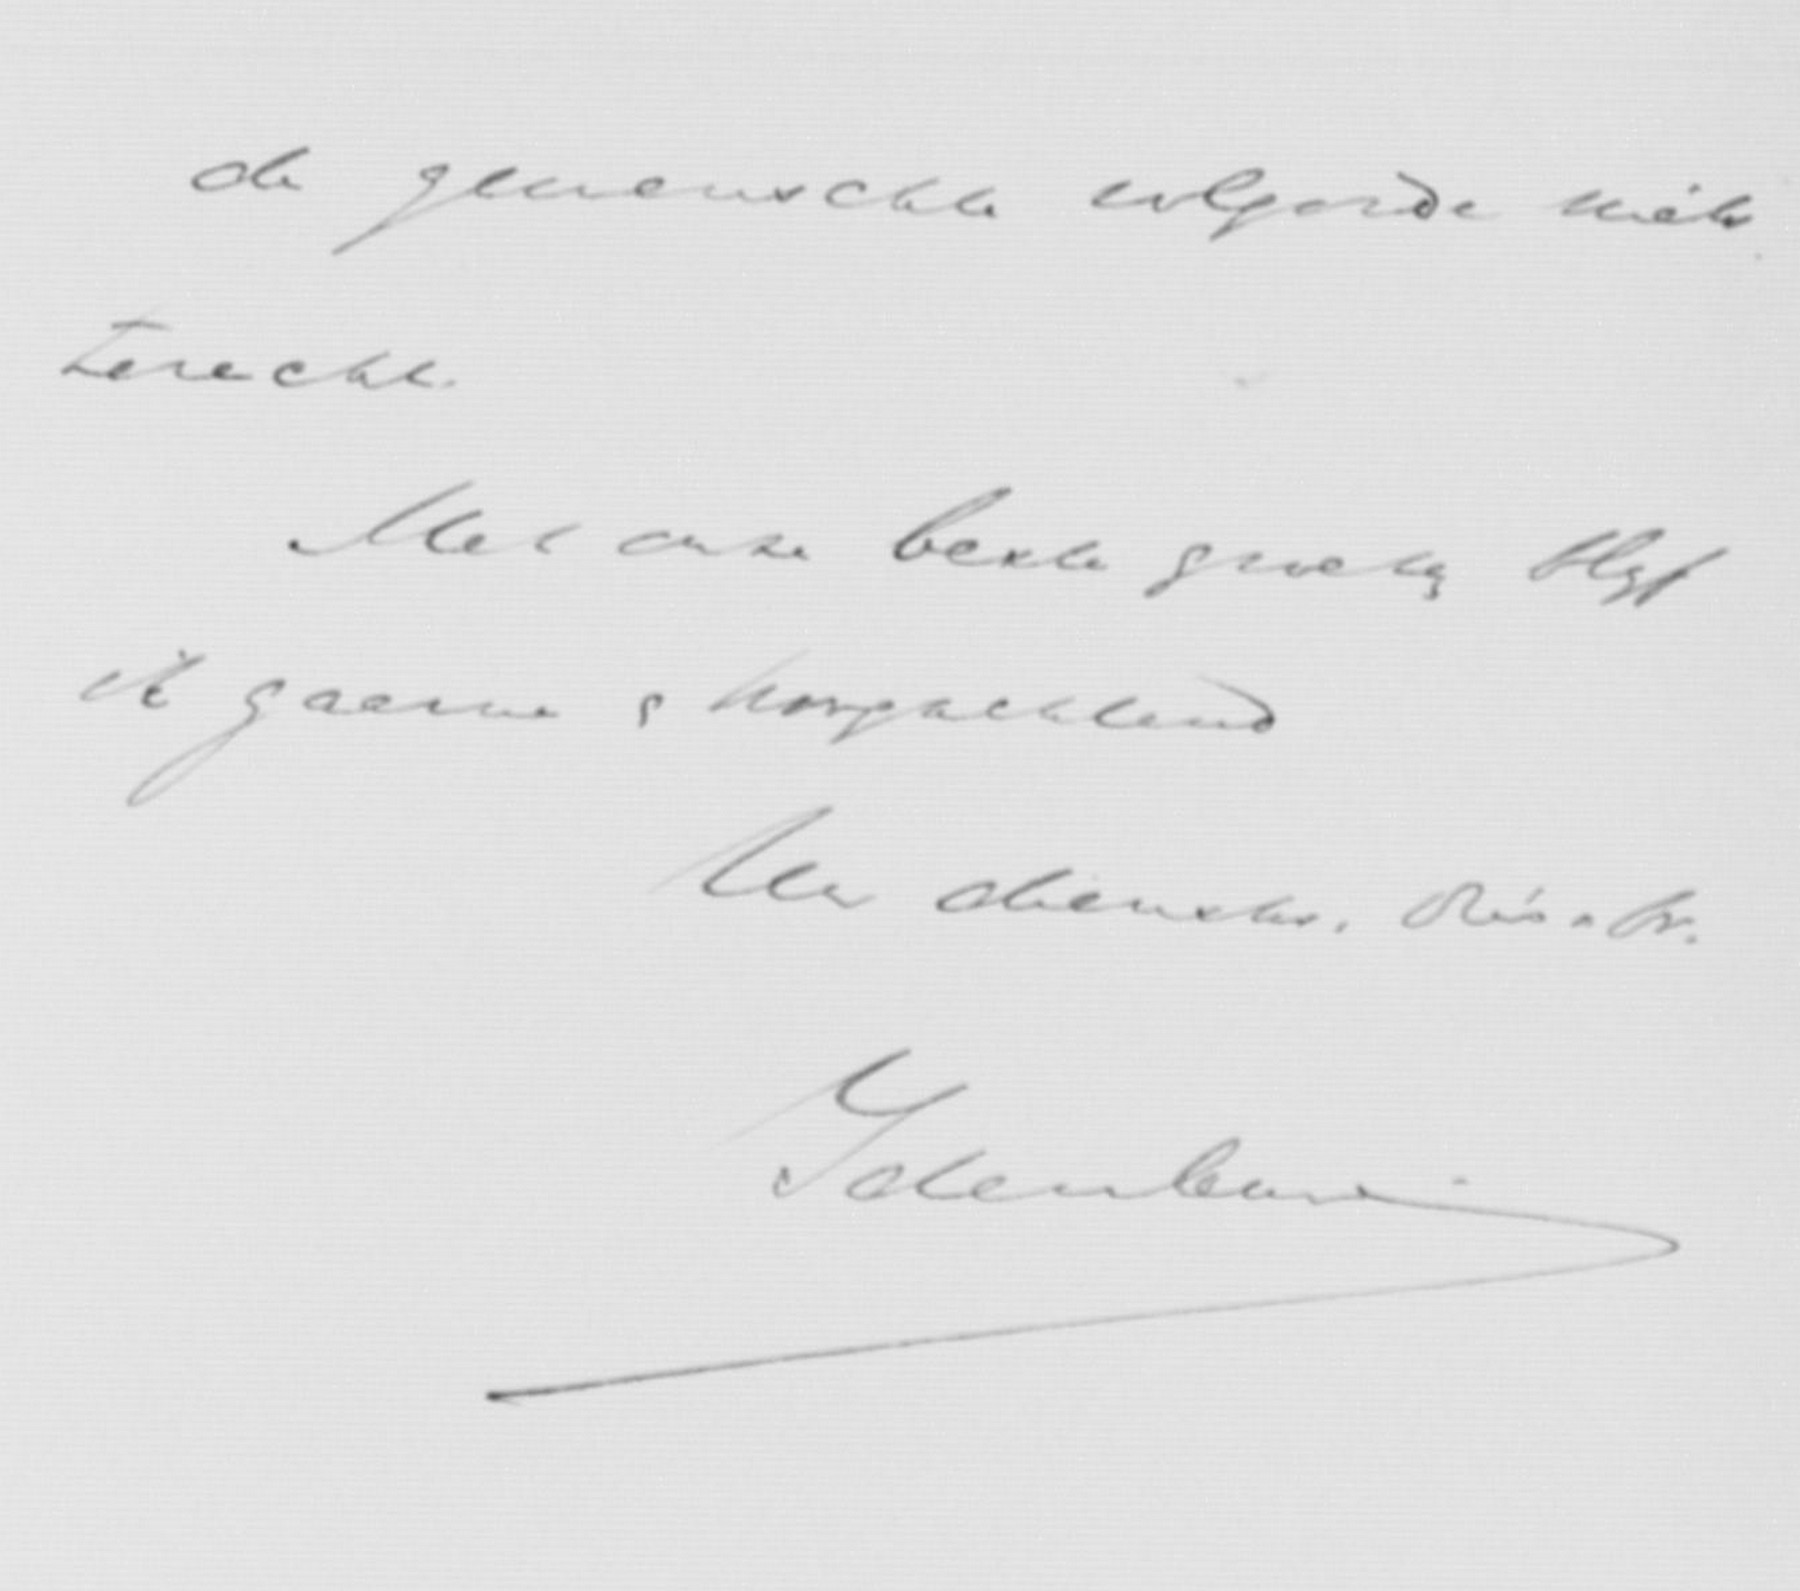 de gewenschte volgorde niet
terecht.
Met onze beste groeten blijf
ik gaarne & hoogachtend
Uw dienstw. dr. & br.
Idenburg